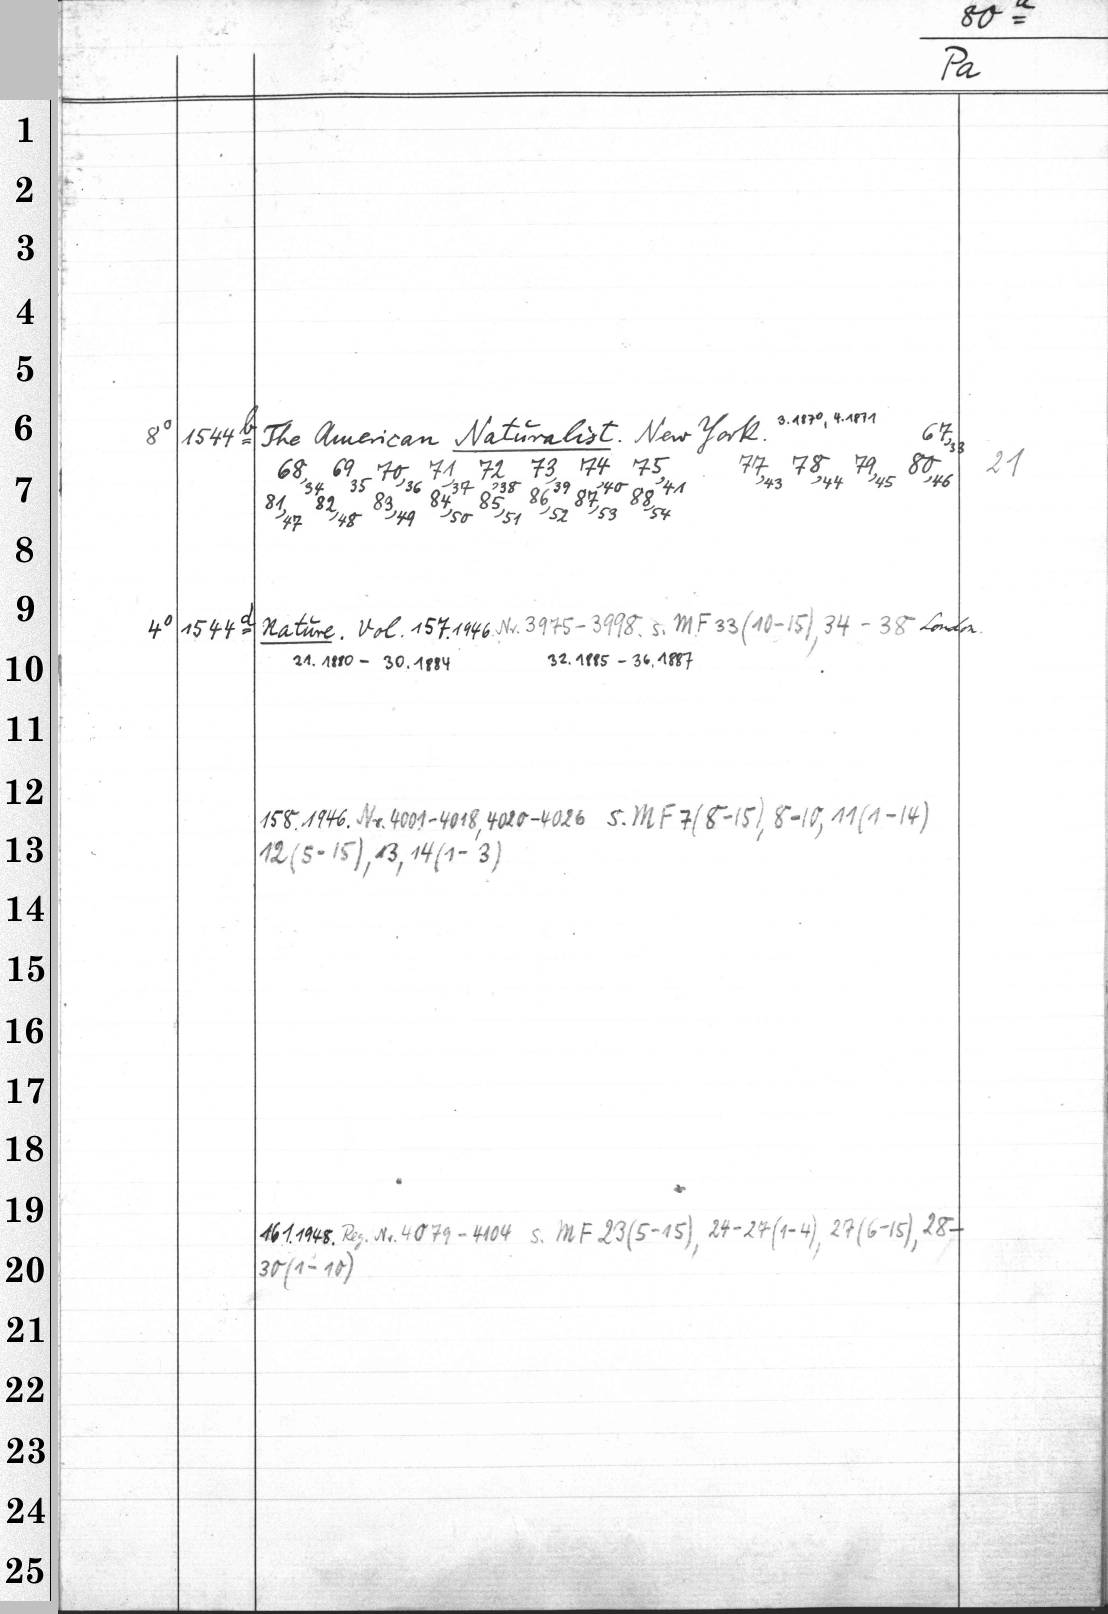 80 a
Pa
1
2
3
4
5
6
8° 1544 b The American Naturalist. New York. 3.1870, 4.1871 67,33
68,34 69,35 70,36 71,37 72,38 73,39 74,40 75,41 77,43 78,44 79,45 80,46 21
7
81,47 82,48 83,49 84,50 85,51 86,52 87,53 88,54
8
9
4° 1544 d Nature. Vol. 157.1946 Nr. 3975-3998. s. MF 33(10-15), 34 - 38 London.
10 21.1880 - 30.1884 32.1885 - 36.1887
11
12
158.1946. Nr. 4001-4018, 4020-4026 s. MF 7(8-15), 8-10, 11(1-14)
13 12(5-15), 13, 14(1-3)
14
15
16
17
18
19
161.1948. Reg. Nr. 4079-4104 s. MF 23(5-15), 24-27(1-4), 27(6-15), 28-
20 30(1-10)
21
22
23
24
25